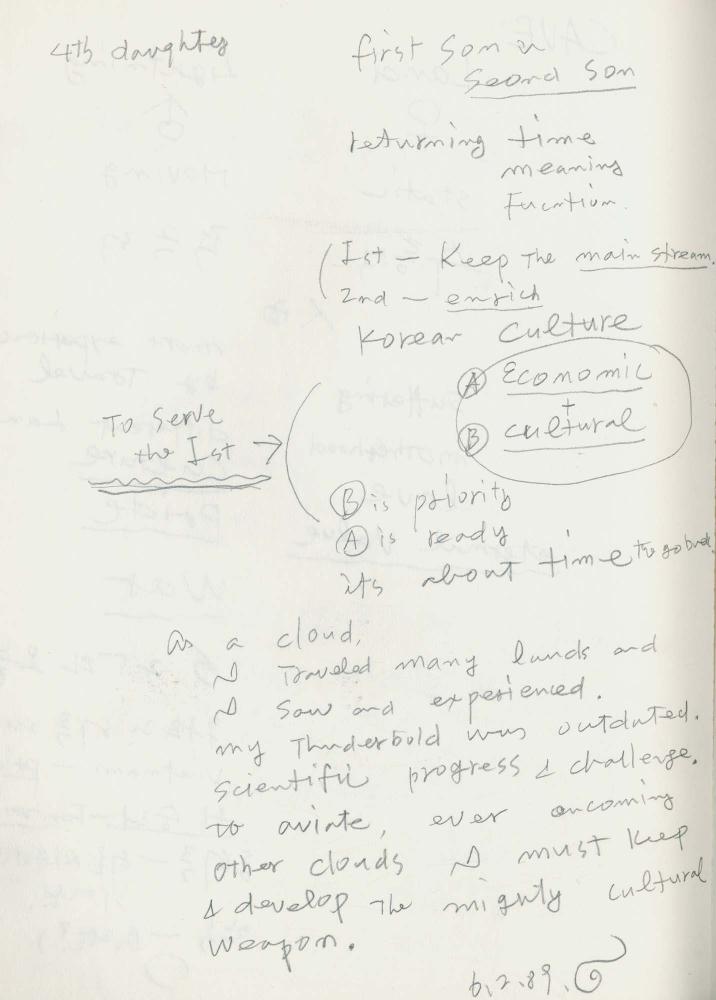 4th daughter
first son &
Second son
returning time
meaning
Fucntion.
1st — Keep The main stream.
2nd — enrich
Korean culture
Ⓐ Economic
+
Ⓑ cultural
To Serve
the 1st →
Ⓑ is priority
Ⓐ is ready
its about time to go back.
As a cloud,
I Traveled many lands and
I saw and experienced.
my Thunderbold was outdated.
scientific progress & challenge.
To aviate, ever oncoming
other clouds I must keep
& develop The mighty cultural
weapon.
6.2.89.